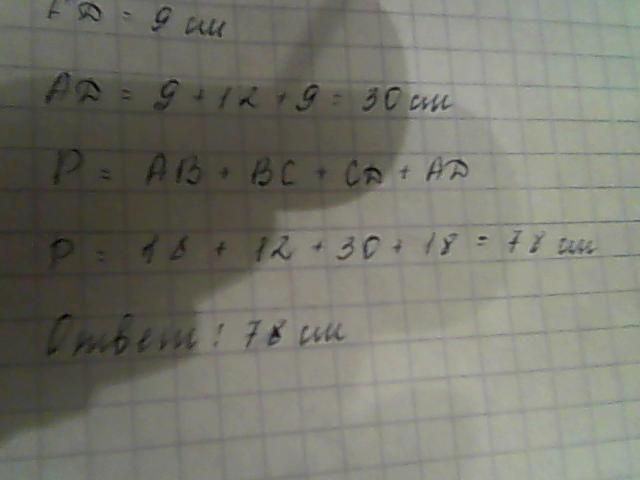 FD = 9 см
AD = 9 + 12 + 9 = 30 см
P = AB + BC + CD + AD
P = 18 + 12 + 30 + 18 = 78 см
Ответ: 78 см